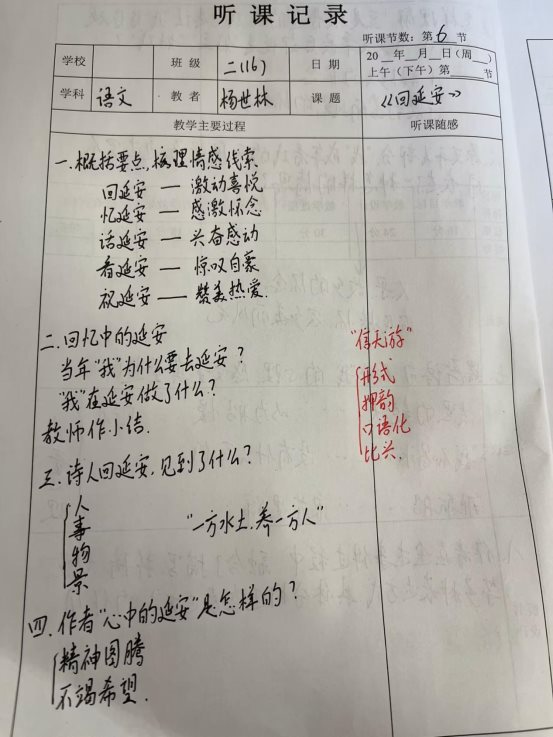 听课记录
听课节数：第6节
学校 班级 二(16) 日期 20__年__月__日(周__)
上午(下午)第____节
学科 语文 教者 杨世林 课题 《回延安》
教学主要过程 听课随感
一.概括要点,梳理情感线索.
回延安 — 激动喜悦
忆延安 — 感激怀念
话延安 — 兴奋感动
看延安 — 惊叹自豪
祝延安 — 赞美热爱.
二.回忆中的延安
当年"我"为什么要去延安?
"我"在延安做了什么?
教师作小结.
"信天游"
形式
押韵
口语化
比兴.
三.诗人回延安,见到了什么?
人
事
物
景
"一方水土.养一方人"
四.作者"心中的延安"是怎样的?
精神图腾
不竭希望.